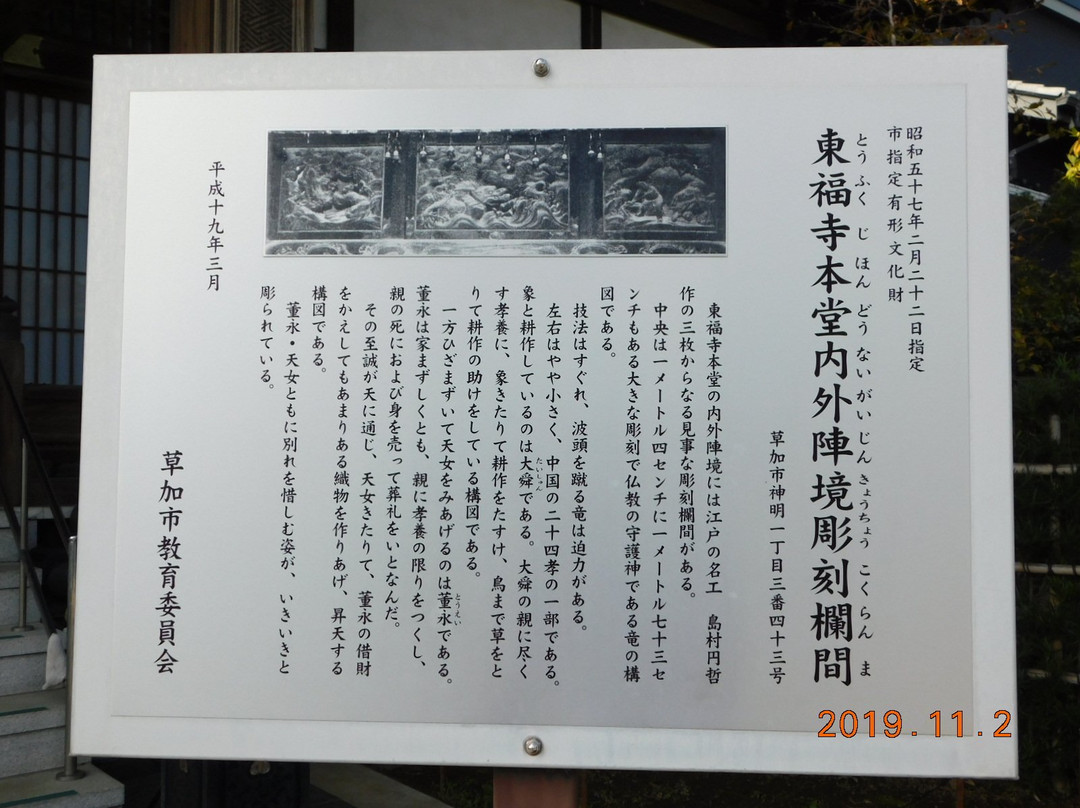 昭和五十七年二月二十二日指定
市指定有形文化財
とうふくじほんどうないがいじんきょうちょうこくらんま
東福寺本堂内外陣境彫刻欄間
草加市神明一丁目三番四十三号
東福寺本堂の内外陣境には江戸の名工　島村円哲
作の三枚からなる見事な彫刻欄間がある。
中央は一メートル四センチに一メートル七十三セ
ンチもある大きな彫刻で仏教の守護神である竜の構
図である。
技法はすぐれ、波頭を蹴る竜は迫力がある。
左右はやや小さく、中国の二十四孝の一部である。
象と耕作しているのは大舜である。大舜の親に尽く
たいしゅん
す孝養に、象きたりて耕作をたすけ、鳥まで草をと
りて耕作の助けをしている構図である。
一方ひざまずいて天女をみあげるのは董永である。
とうえい
董永は家まずしくとも、親に孝養の限りをつくし、
親の死におよび身を売って葬礼をいとなんだ。
その至誠が天に通じ、天女きたりて、董永の借財
をかえしてもあまりある織物を作りあげ、昇天する
構図である。
董永・天女ともに別れを惜しむ姿が、いきいきと
彫られている。
平成十九年三月
草加市教育委員会
2019.11.2